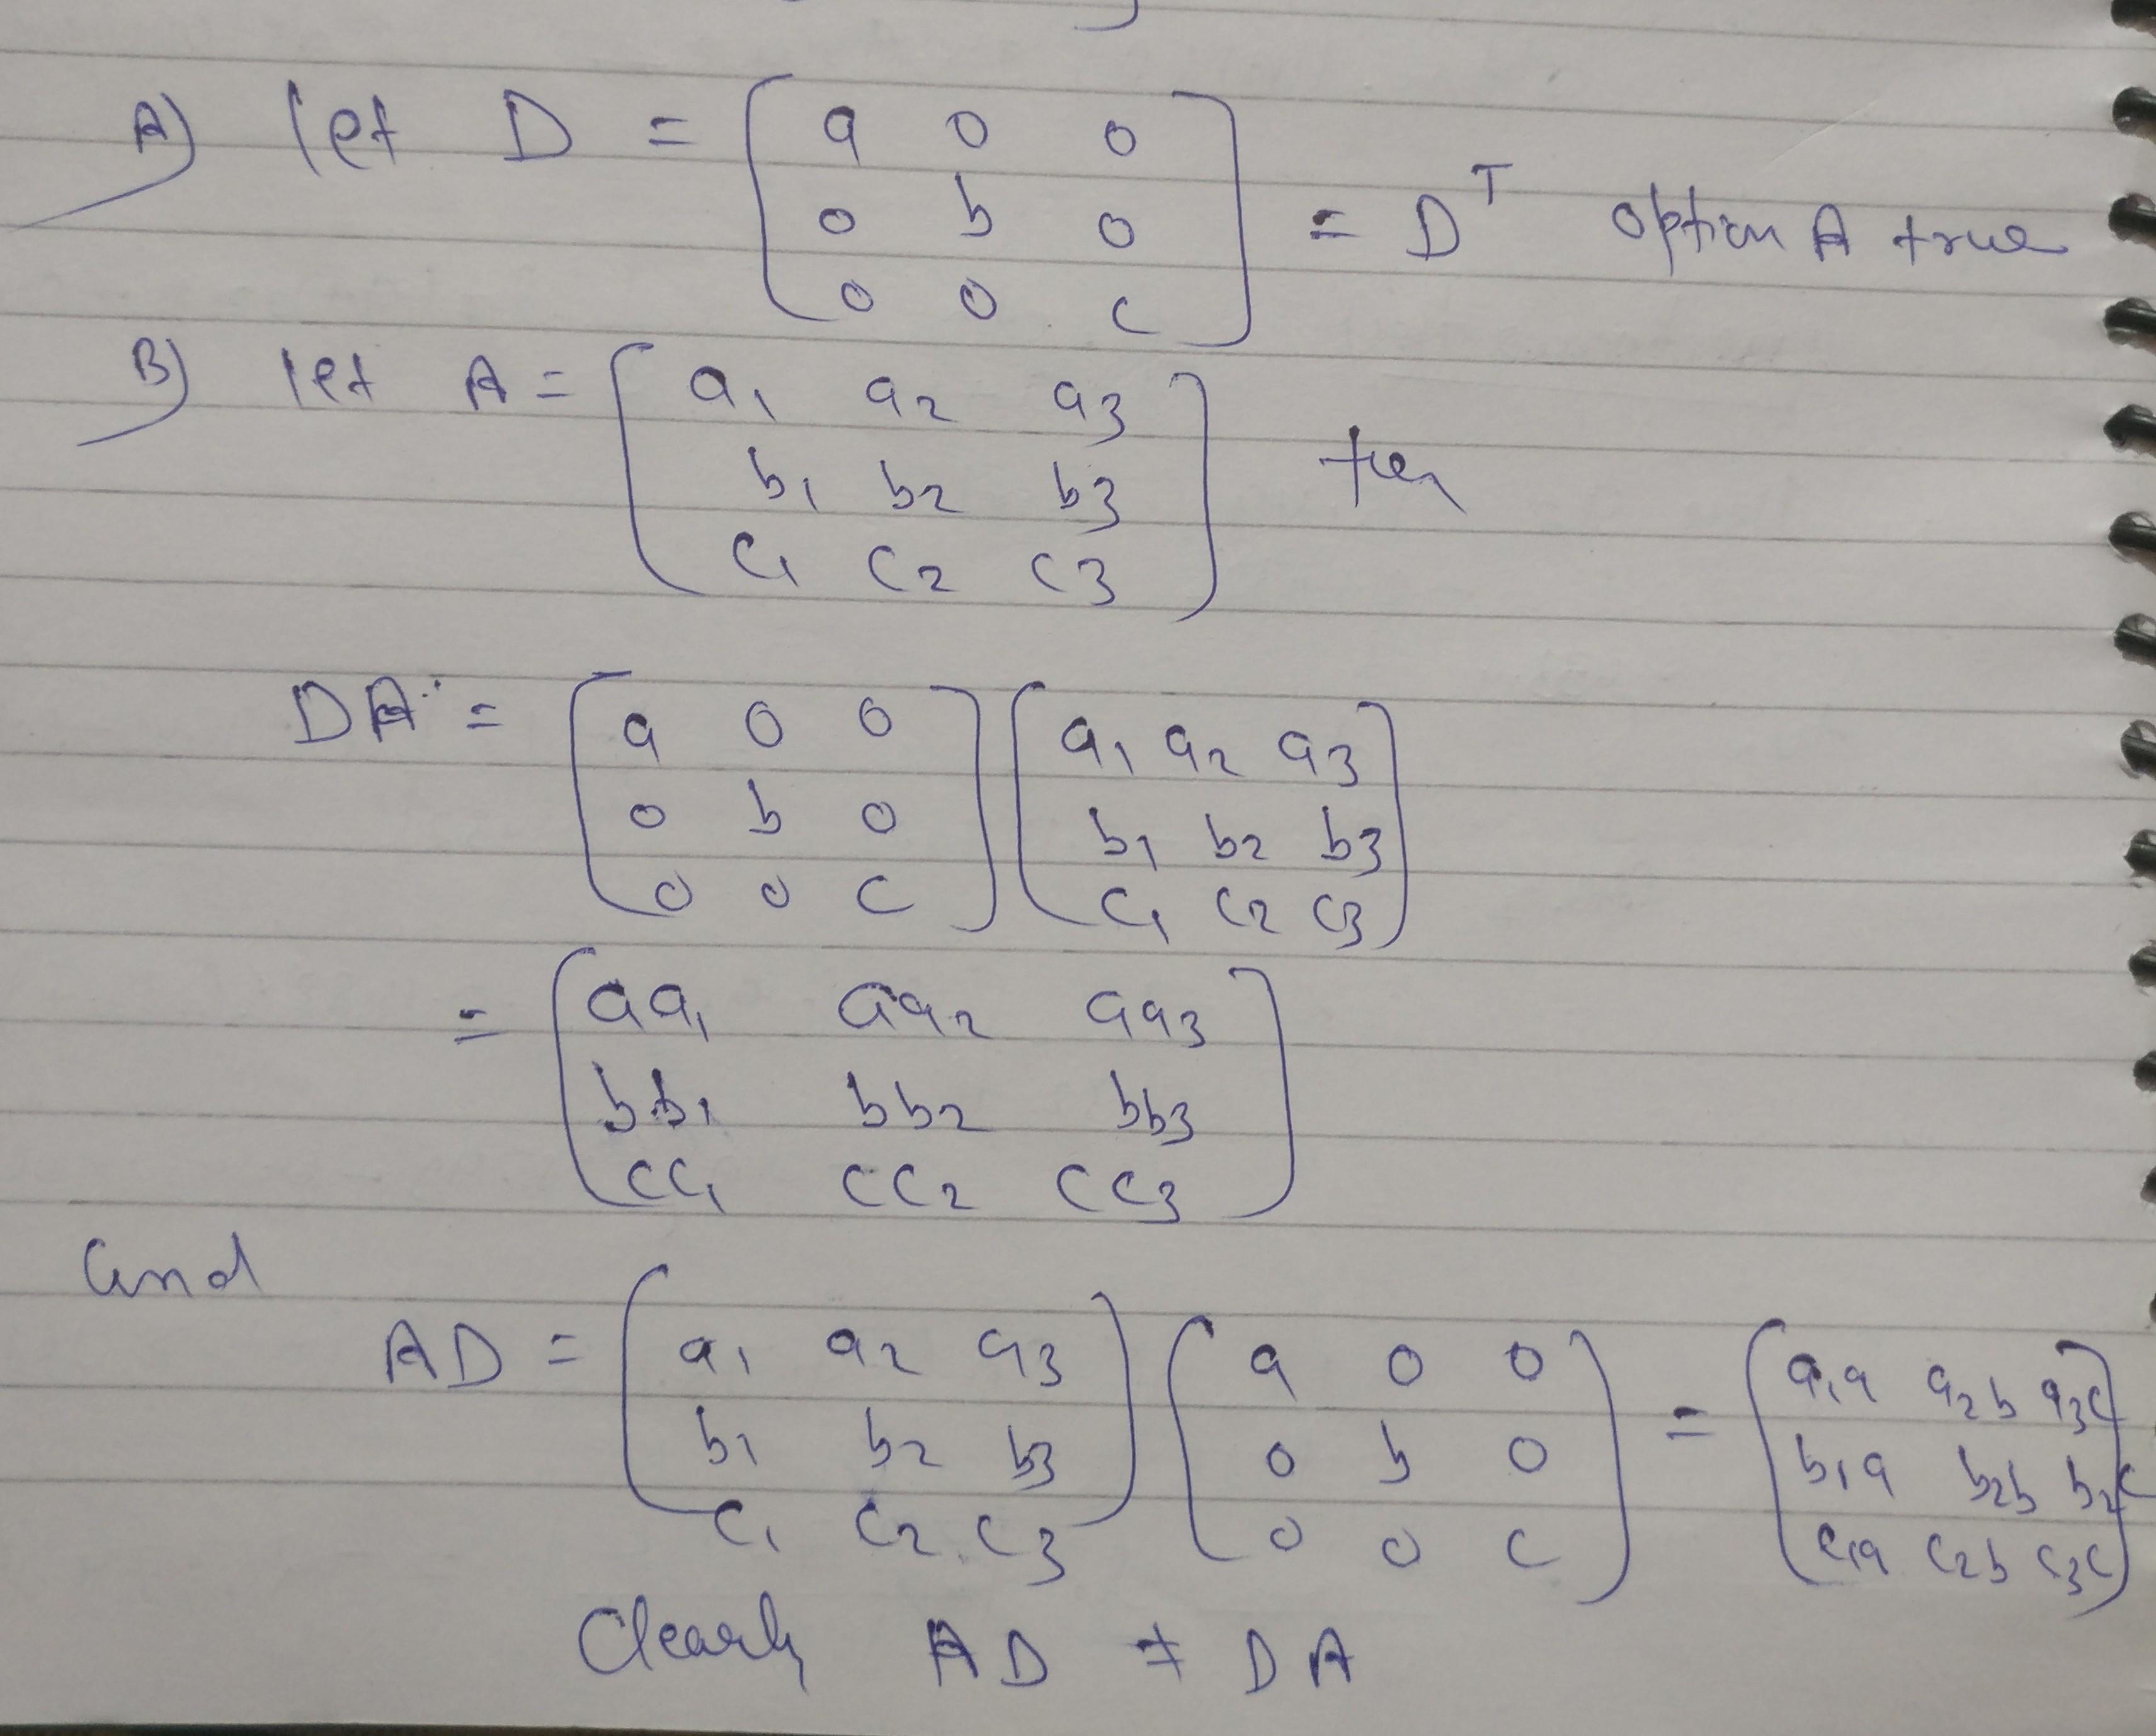 A) let D = [ a 0 0
0 b 0
0 0 c ] = D^T option A true
B) let A = [ a1 a2 a3
b1 b2 b3
c1 c2 c3 ] then
DA = [ a 0 0
0 b 0
0 0 c ] [ a1 a2 a3
b1 b2 b3
c1 c2 c3 ]
= [ aa1 aa2 aa3
bb1 bb2 bb3
cc1 cc2 cc3 ]
and
AD = [ a1 a2 a3
b1 b2 b3
c1 c2 c3 ] [ a 0 0
0 b 0
0 0 c ] = [ a1a a2b a3c
b1a b2b b2c
c1a c2b c3c ]
Clearly AD ≠ DA